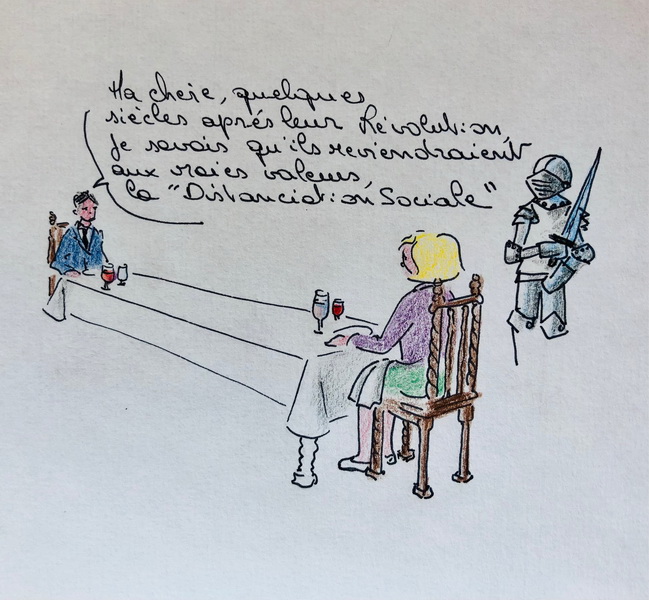 Ma chère, quelques
siècles après leur Révolution,
je savais qu'ils reviendraient
aux vraies valeurs,
la "Distanciation Sociale"